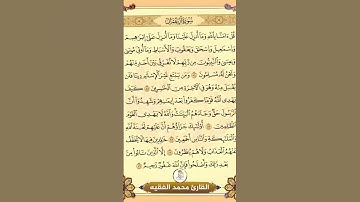 سُورَةُ آلِ عِمْرَانَ
قُلْ ءَامَنَّا بِٱللَّهِ وَمَآ أُنزِلَ عَلَيْنَا وَمَآ أُنزِلَ عَلَىٰٓ إِبْرَٰهِيمَ
وَإِسْمَٰعِيلَ وَإِسْحَٰقَ وَيَعْقُوبَ وَٱلْأَسْبَاطِ وَمَآ أُوتِىَ مُوسَىٰ
وَعِيسَىٰ وَٱلنَّبِيُّونَ مِن رَّبِّهِمْ لَا نُفَرِّقُ بَيْنَ أَحَدٍ مِّنْهُمْ
وَنَحْنُ لَهُۥ مُسْلِمُونَ وَمَن يَبْتَغِ غَيْرَ ٱلْإِسْلَٰمِ دِينًا فَلَن
يُقْبَلَ مِنْهُ وَهُوَ فِى ٱلْءَاخِرَةِ مِنَ ٱلْخَٰسِرِينَ كَيْفَ
يَهْدِى ٱللَّهُ قَوْمًا كَفَرُوا۟ بَعْدَ إِيمَٰنِهِمْ وَشَهِدُوٓا۟ أَنَّ
ٱلرَّسُولَ حَقٌّ وَجَآءَهُمُ ٱلْبَيِّنَٰتُ وَٱللَّهُ لَا يَهْدِى ٱلْقَوْمَ
ٱلظَّٰلِمِينَ أُو۟لَٰٓئِكَ جَزَآؤُهُمْ أَنَّ عَلَيْهِمْ لَعْنَةَ ٱللَّهِ
وَٱلْمَلَٰٓئِكَةِ وَٱلنَّاسِ أَجْمَعِينَ خَٰلِدِينَ فِيهَا لَا يُخَفَّفُ
عَنْهُمُ ٱلْعَذَابُ وَلَا هُمْ يُنظَرُونَ إِلَّا ٱلَّذِينَ تَابُوا۟ مِنۢ
بَعْدِ ذَٰلِكَ وَأَصْلَحُوا۟ فَإِنَّ ٱللَّهَ غَفُورٌ رَّحِيمٌ
القارئ محمد الفقيه